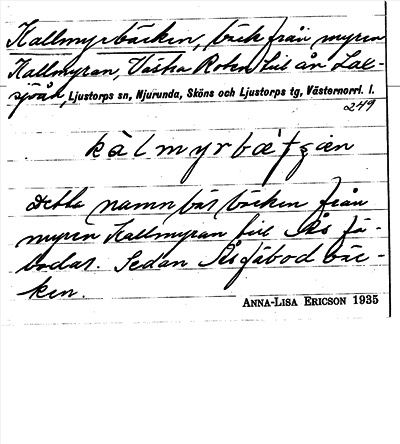 Kallmyrbäcken, bäck från myren
Kallmyran, Västra Roten till ån Lax-
sjöån, Ljustorps sn, Njurunda, Sköns och Ljustorps tg, Västernorrl. l.
249
kàlmyrbætʂæn
Detta namn bär bäcken från
myren Kallmyran till Ås fä-
bodar. Sedan Åsfäbodbäc-
ken.
ANNA-LISA ERICSON 1935